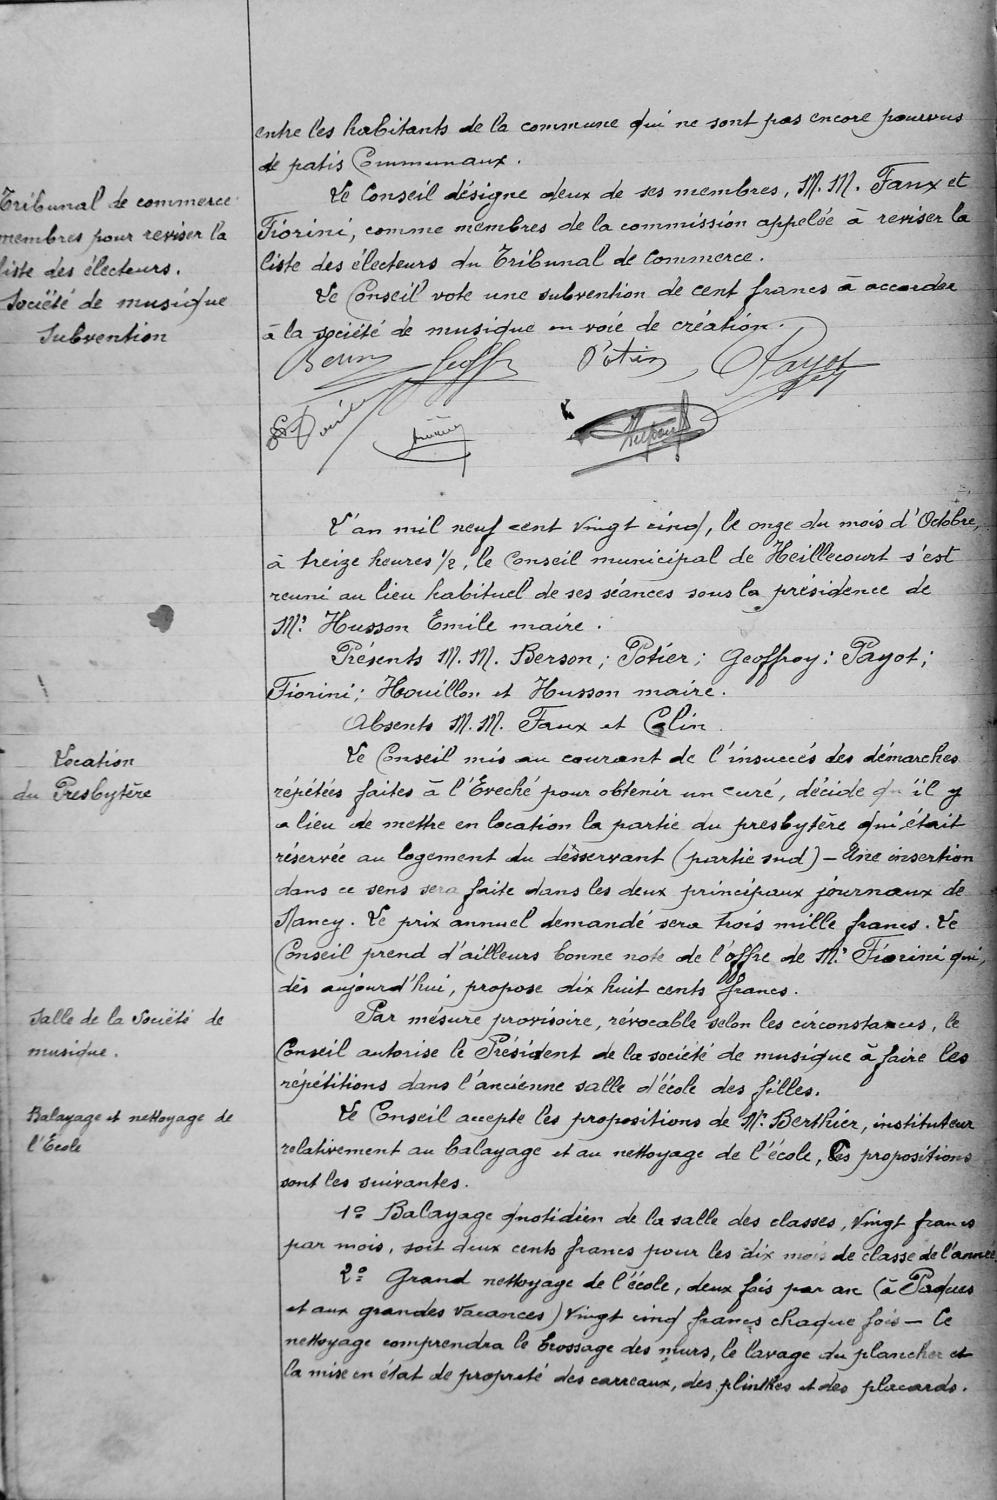 entre les habitants de la commune qui ne sont pas encore pourvus
de patis Communaux.
Tribunal de commerce
membres pour reviser la
liste des électeurs.
Le Conseil désigne deux de ses membres, M.M. Faux et
Fiorini, comme membres de la commission appelée à reviser la
liste des électeurs du Tribunal de Commerce.
Société de musique
Subvention
Le Conseil vote une subvention de cent francs à accorder
à la société de musique en voie de création.
Berson Geoff Potier Payot
L'an mil neuf cent vingt cinq, le onze du mois d'Octobre,
à treize heures 1/2, le Conseil municipal de Heillecourt s'est
reuni au lieu habituel de ses séances sous la présidence de
Mr Husson Emile maire.
Présents M.M. Berson; Potier; Geoffroy; Payot;
Fiorini; Houillon et Husson maire.
Absents M.M. Faux et Colin
Location
du Presbytère
Le Conseil mis au courant de l'insuccés des démarches
répétées faites à l'Eveché pour obtenir un curé, décide qu'il y
a lieu de mettre en location la partie du presbytère qui était
réservée au logement du désservant (partie sud) – Une insertion
dans ce sens sera faite dans les deux principaux journaux de
Nancy. Le prix annuel demandé sera trois mille francs. Le
Conseil prend d'ailleurs bonne note de l'offre de Mr Fiorini qui,
dès aujourd'hui, propose dix huit cents francs.
Salle de la Société de
musique.
Par mésure provisoire, révocable selon les circonstances, le
Conseil autorise le Président de la société de musique à faire les
répétitions dans l'ancienne salle d'école des filles.
Balayage et nettoyage de
l'Ecole
Le Conseil accepte les propositions de Mr Berthier, instituteur
relativement au balayage et au nettoyage de l'école, Ces propositions
sont les suivantes.
1º Balayage quotidien de la salle des classes, vingt francs
par mois, soit deux cents francs pour les dix mois de classe de l'année.
2º Grand nettoyage de l'école, deux fois par an (à Paques
et aux grandes vacances) vingt cinq francs chaque fois – Ce
nettoyage comprendra le brossage des murs, le lavage du plancher et
la mise en état de propreté des carreaux, des plinthes et des placards.